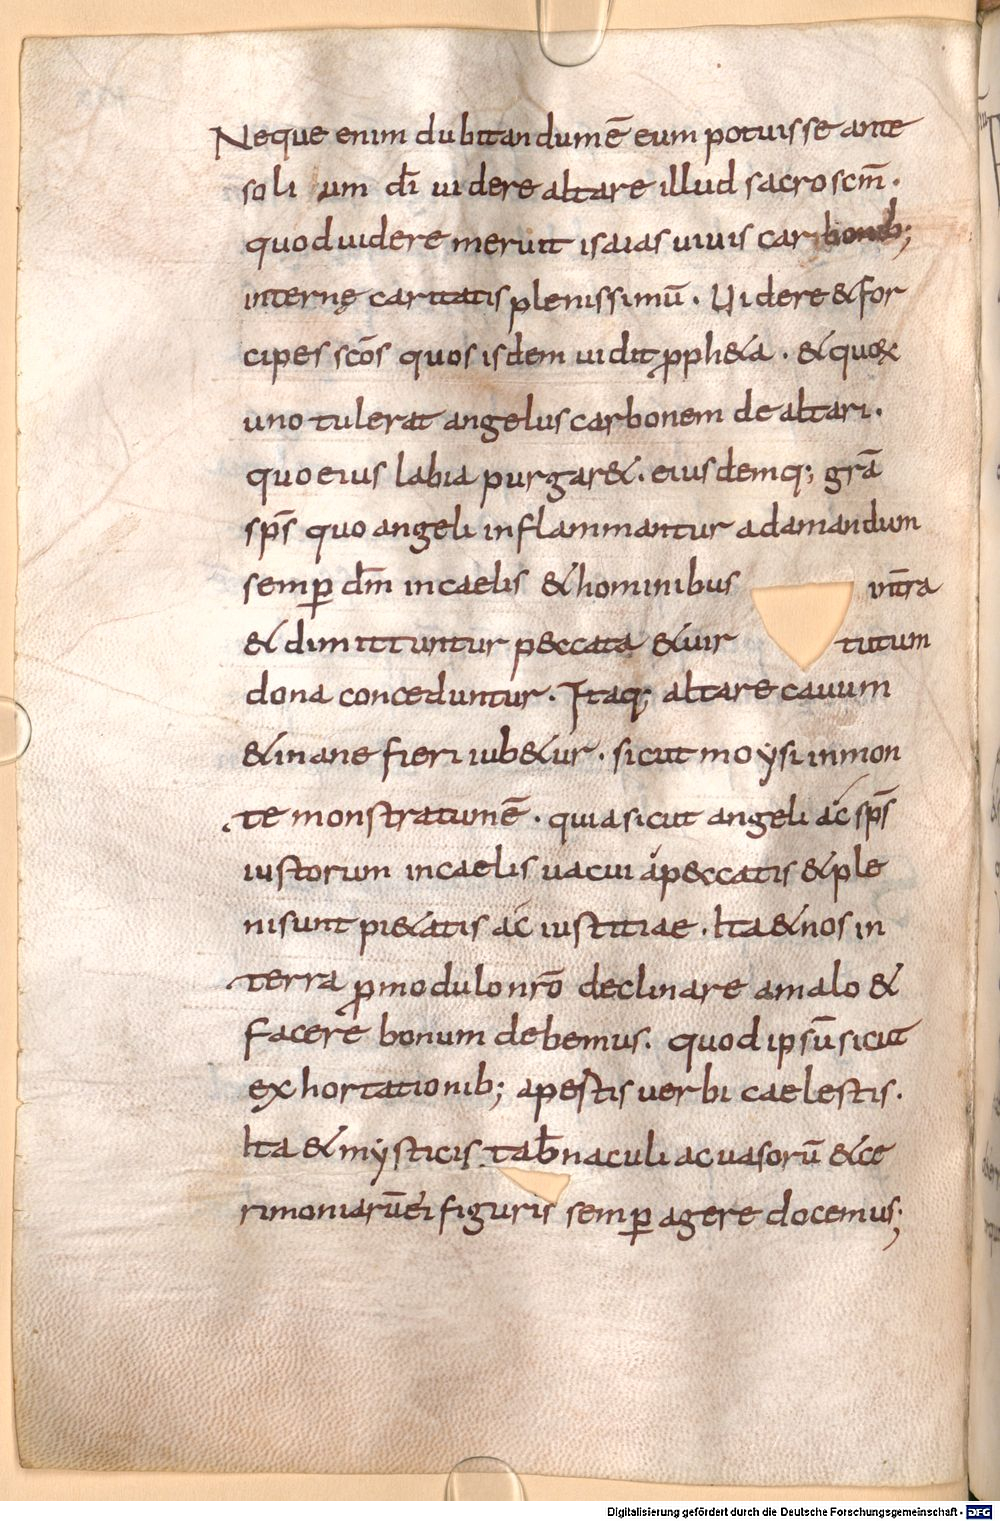 Neque enim dubitandum ē eum potuisse ante
soli um d̄i uidere altare illud sacroscm̄.
quod uidere meruit isaias uiuis carbonib;
internę caritatis plenissimū. Uidere & for
cipes scōs quos isdem uidit ꝓph&a. & quo ex
uno tulerat angelus carbonem de altari.
quo eius labia purgar&. eiusdemq; grā
sp̄s quo angeli inflammantur ad amandum
semꝑ dm̄ in caelis & hominibus int̄ra
& dimittuntur peccata & uir tutum
dona conceduntur. Itaq; altare cauum
& inane fieri iub&ur. sicut moysi in mon
te monstratum ē. quia sicut angeli ac sp̄s
iustorum in caelis uacui a peccatis & ple
ni sunt pi&atis ac iustitiae. Ita & nos in
terra ꝓ modulo nrō declinare a malo &
facere bonum debemus. quod ipsū sicut
exhortationib; apertis uerbi caelestis.
Ita & mysticis tab̄naculi ac uasorū & ce
rimoniarū ei figuris semꝑ agere docemus;
Digitalisierung gefördert durch die Deutsche Forschungsgemeinschaft - DFG